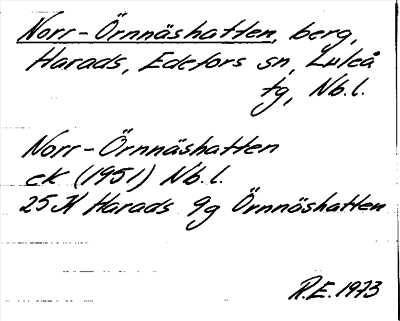 Norr-Örnnäshatten, berg,
Harads, Edefors sn, Luleå
tg, Nb.l.
Norr-Örnnäshatten
ek (1951) Nb.l.
25K Harads 9g Örnnäshatten
R.E. 1973